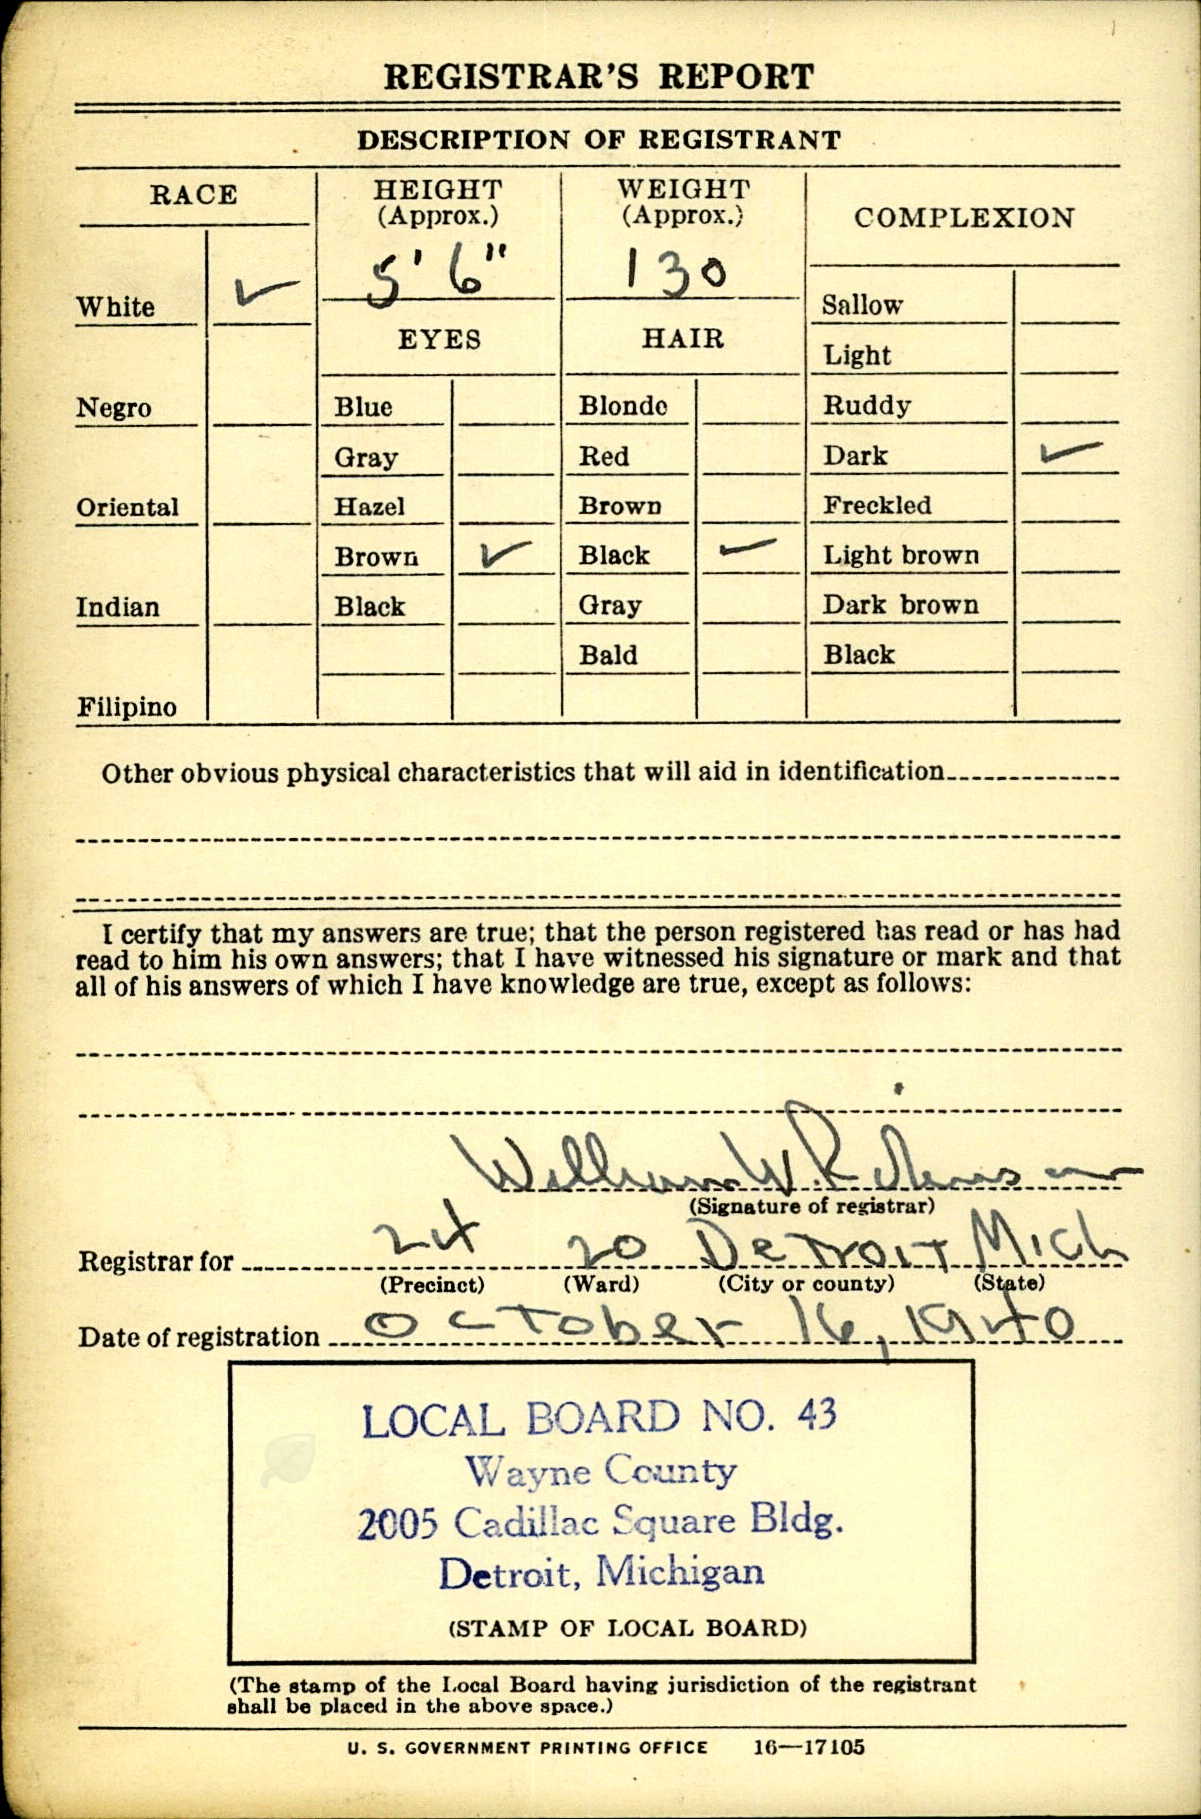 REGISTRAR'S REPORT
DESCRIPTION OF REGISTRANT
RACE
White ✓
Negro
Oriental
Indian
Filipino
HEIGHT
(Approx.)
5' 6"
WEIGHT
(Approx.)
130
EYES
Blue
Gray
Hazel
Brown ✓
Black
HAIR
Blonde
Red
Brown
Black ✓
Gray
Bald
COMPLEXION
Sallow
Light
Ruddy
Dark ✓
Freckled
Light brown
Dark brown
Black
Other obvious physical characteristics that will aid in identification
I certify that my answers are true; that the person registered has read or has had
read to him his own answers; that I have witnessed his signature or mark and that
all of his answers of which I have knowledge are true, except as follows:
William W.
(Signature of registrar)
Registrar for 24 20 Detroit Mich
(Precinct) (Ward) (City or county) (State)
Date of registration October 16, 1940
LOCAL BOARD NO. 43
Wayne County
2005 Cadillac Square Bldg.
Detroit, Michigan
(STAMP OF LOCAL BOARD)
(The stamp of the Local Board having jurisdiction of the registrant
shall be placed in the above space.)
U. S. GOVERNMENT PRINTING OFFICE 16—17105